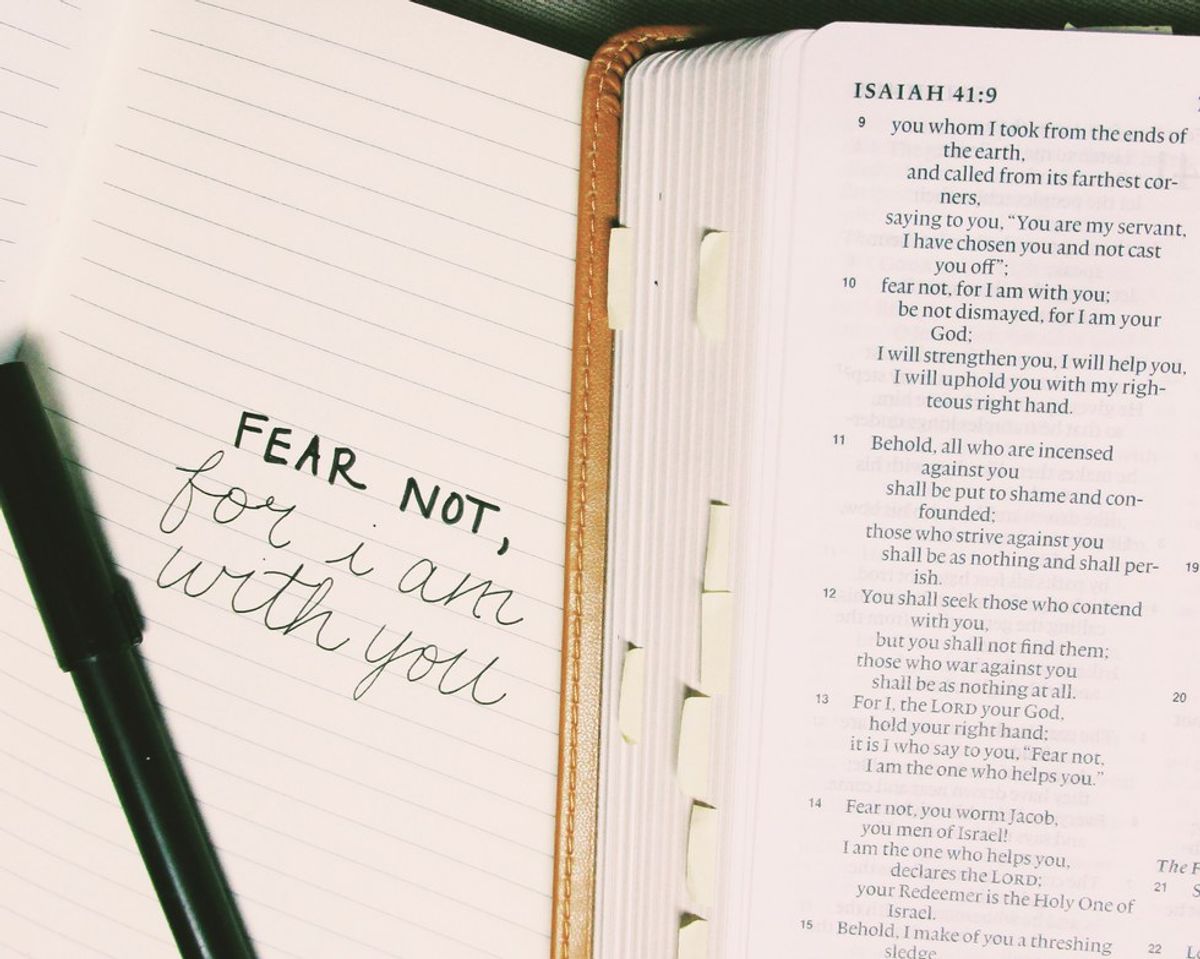 FEAR NOT,
for i am
with you
ISAIAH 41:9
9 you whom I took from the ends of
the earth,
and called from its farthest cor-
ners,
saying to you, “You are my servant,
I have chosen you and not cast
you off”;
10 fear not, for I am with you;
be not dismayed, for I am your
God;
I will strengthen you, I will help you,
I will uphold you with my righ-
teous right hand.
11 Behold, all who are incensed
against you
shall be put to shame and con-
founded;
those who strive against you
shall be as nothing and shall per-
ish.
12 You shall seek those who contend
with you,
but you shall not find them;
those who war against you
shall be as nothing at all.
13 For I, the LORD your God,
hold your right hand;
it is I who say to you, “Fear not,
I am the one who helps you.”
14 Fear not, you worm Jacob,
you men of Israel!
I am the one who helps you,
declares the LORD;
your Redeemer is the Holy One of
Israel.
15 Behold, I make of you a threshing
sledge
19
20
The F
21 S
22